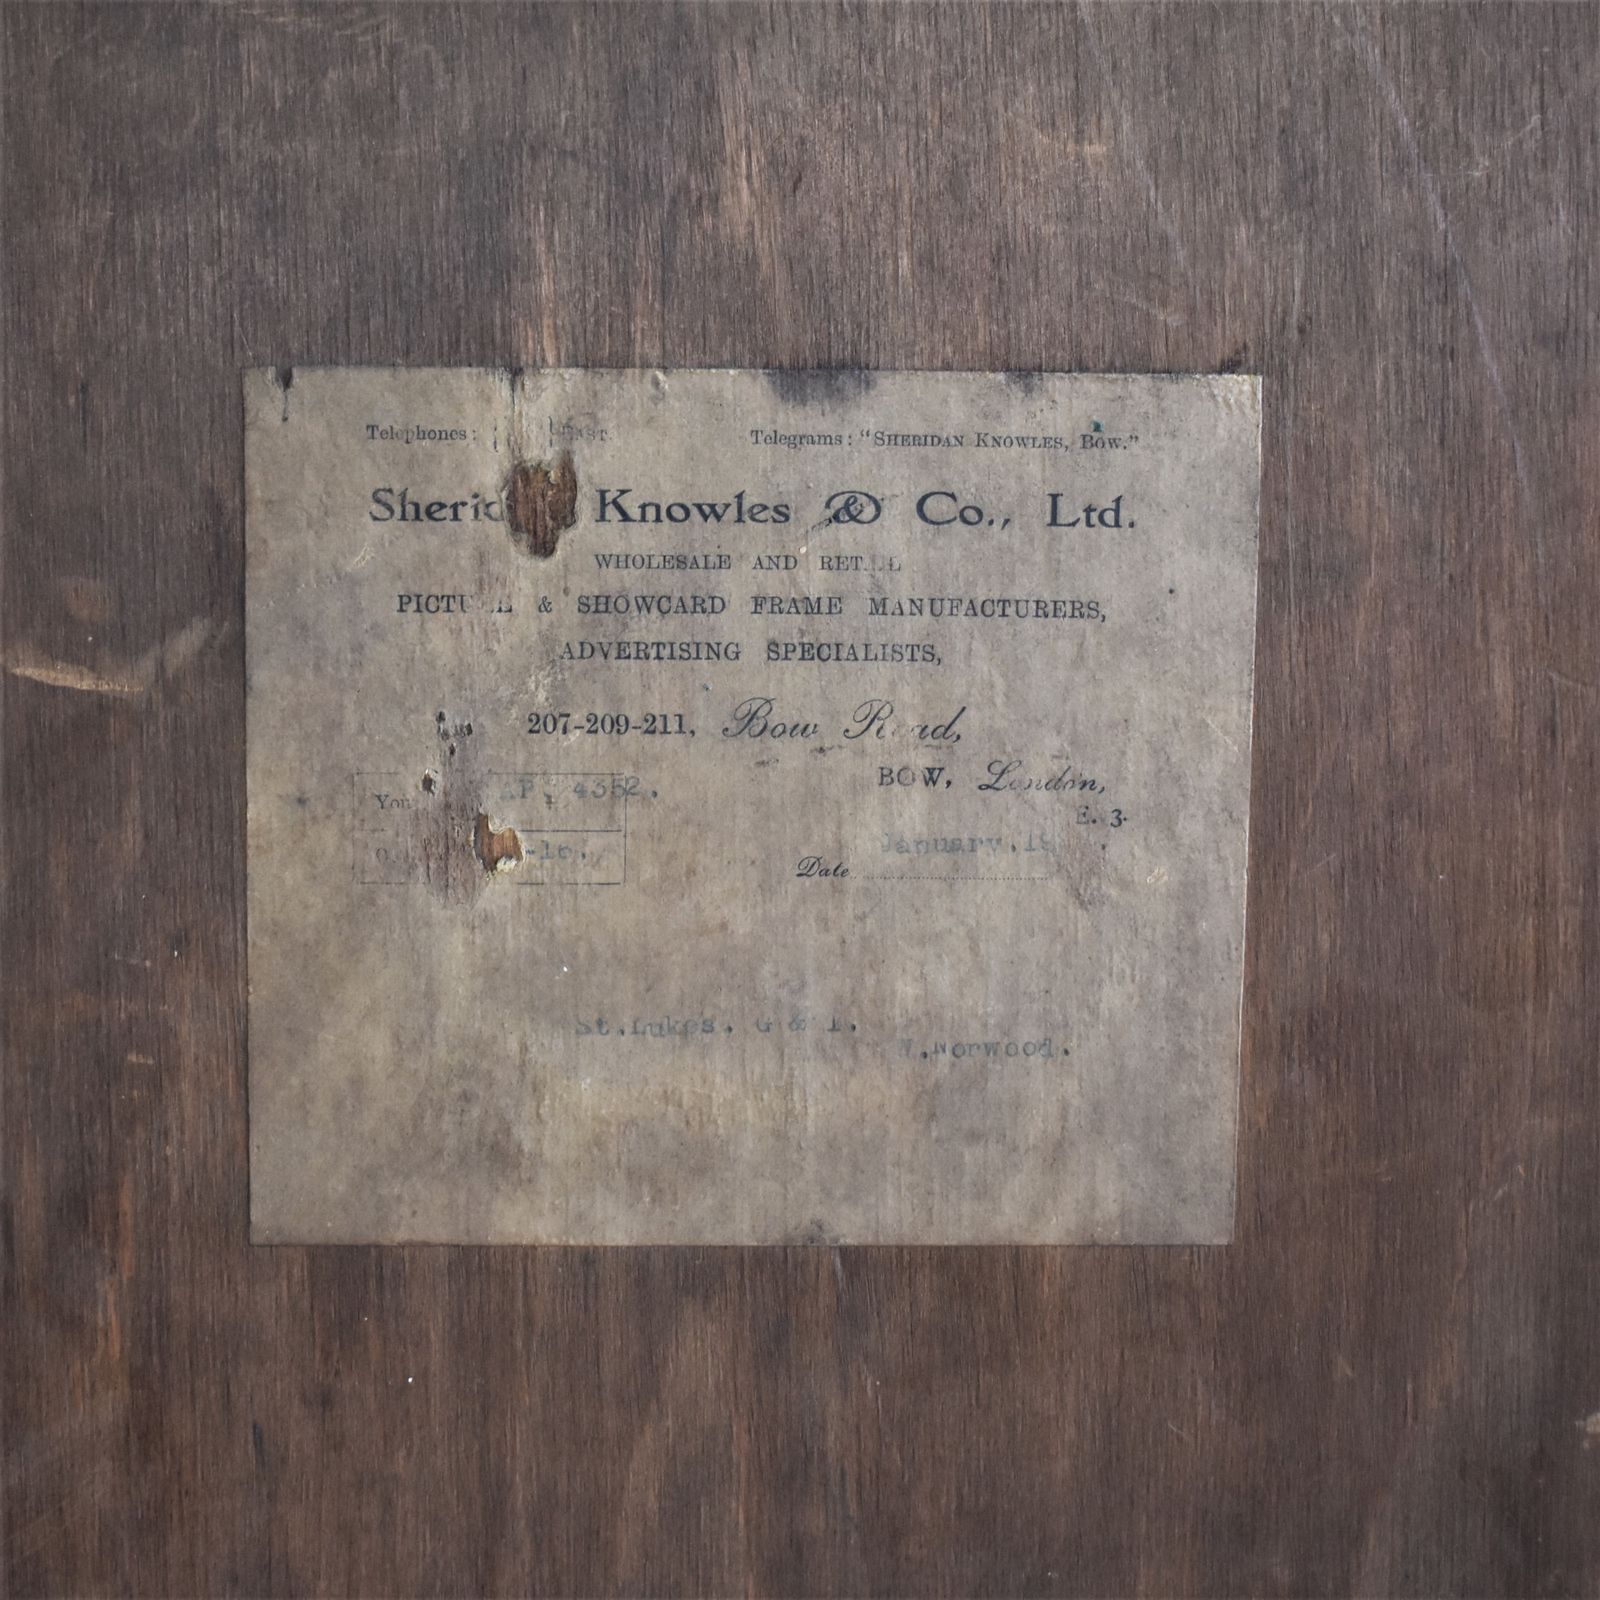 Telephones: EAST.
Telegrams: "SHERIDAN KNOWLES, BOW."
Knowles & Co., Ltd.
WHOLESALE AND
& SHOWCARD FRAME MANUFACTURERS,
ADVERTISING SPECIALISTS,
207-209-211, Bow Road,
BOW, London,
E. 3.
AP. 4352.
-16.
Date January.
St.Lukes. G &
W.Norwood.